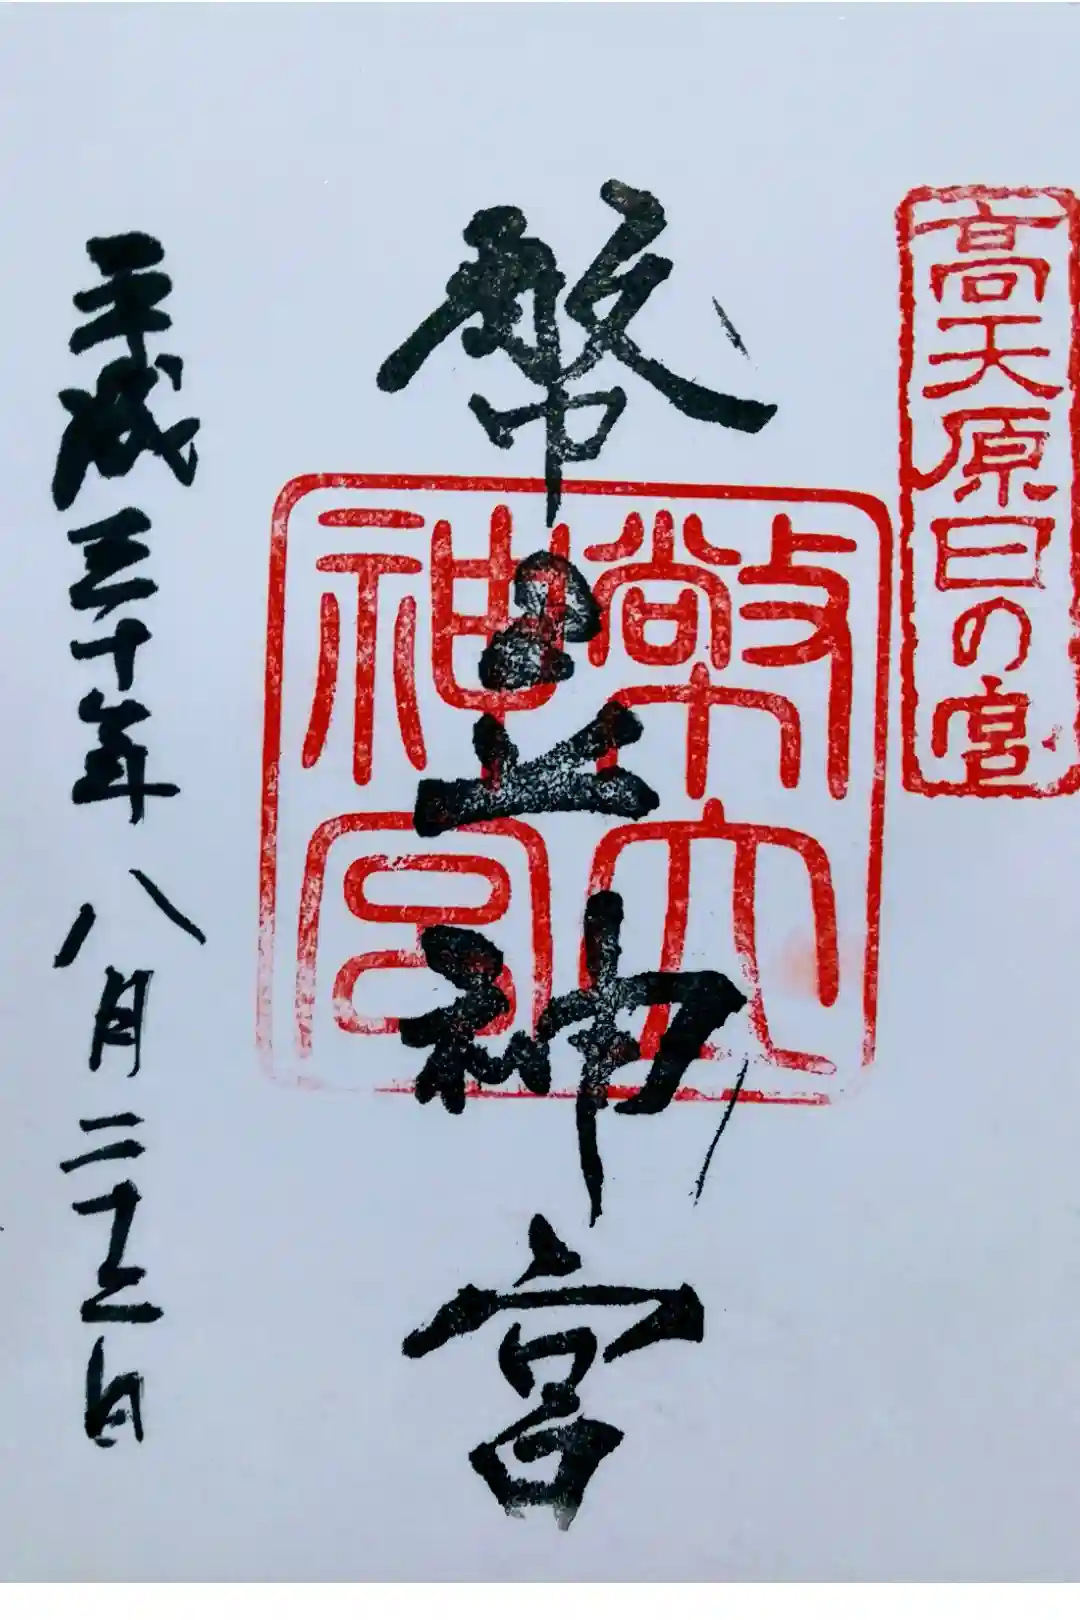 高天原日の宮
幣立神宮
幣立
神宮
平成三十年八月二十三日